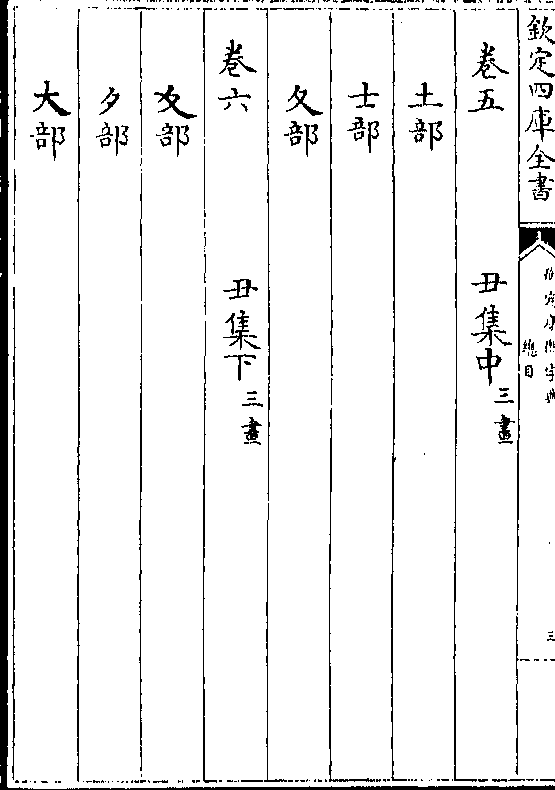 欽定四庫全書
御定康熙字典
總目
三
卷五 丑集中三畫
土部
士部
夂部
卷六 丑集下三畫
夊部
夕部
大部